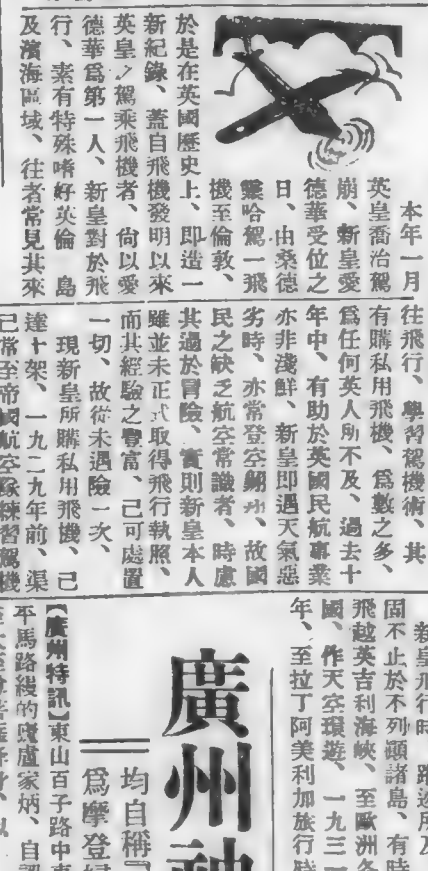 本年一月
英皇喬治駕
崩、新皇愛
德華受位之
日、由桑德
靈哈駕一飛
機至倫敦、
於是在英國歷史上、即造一
新紀錄、蓋自飛機發明以來
英皇之駕乘飛機者、尙以愛
德華爲第一人、新皇對於飛
行、素有特殊嗜好英倫 島
及濱海區域、往者常見其來
往飛行、學習駕機術、其
有購私用飛機、爲數之多、
爲任何英人所不及、過去十
年中、有助於英國民航事業
亦非淺鮮、新皇即遇天氣惡
劣時、亦常登空翺 、故國
民之缺乏航空常識者、時慮
其過於冒險、實則新皇本人
雖並未正式取得飛行執照、
而其經驗之豐富、已可處置
一切、故從未遇險一次、
現新皇所購私用飛機、已
達十架、一九二九年前、渠
已常至帝國航空隊練習駕機
新皇飛行時、蹤迹所及
固不止於不列顚諸島、有時
飛越英吉利海峽、至歐洲各
國、作天空環遊、一九三一
年、至拉丁阿美利加旅行時
廣州
均自稱
爲摩登
【廣州特訊】東山百子路中
平馬路縵的 盧家炳、自認